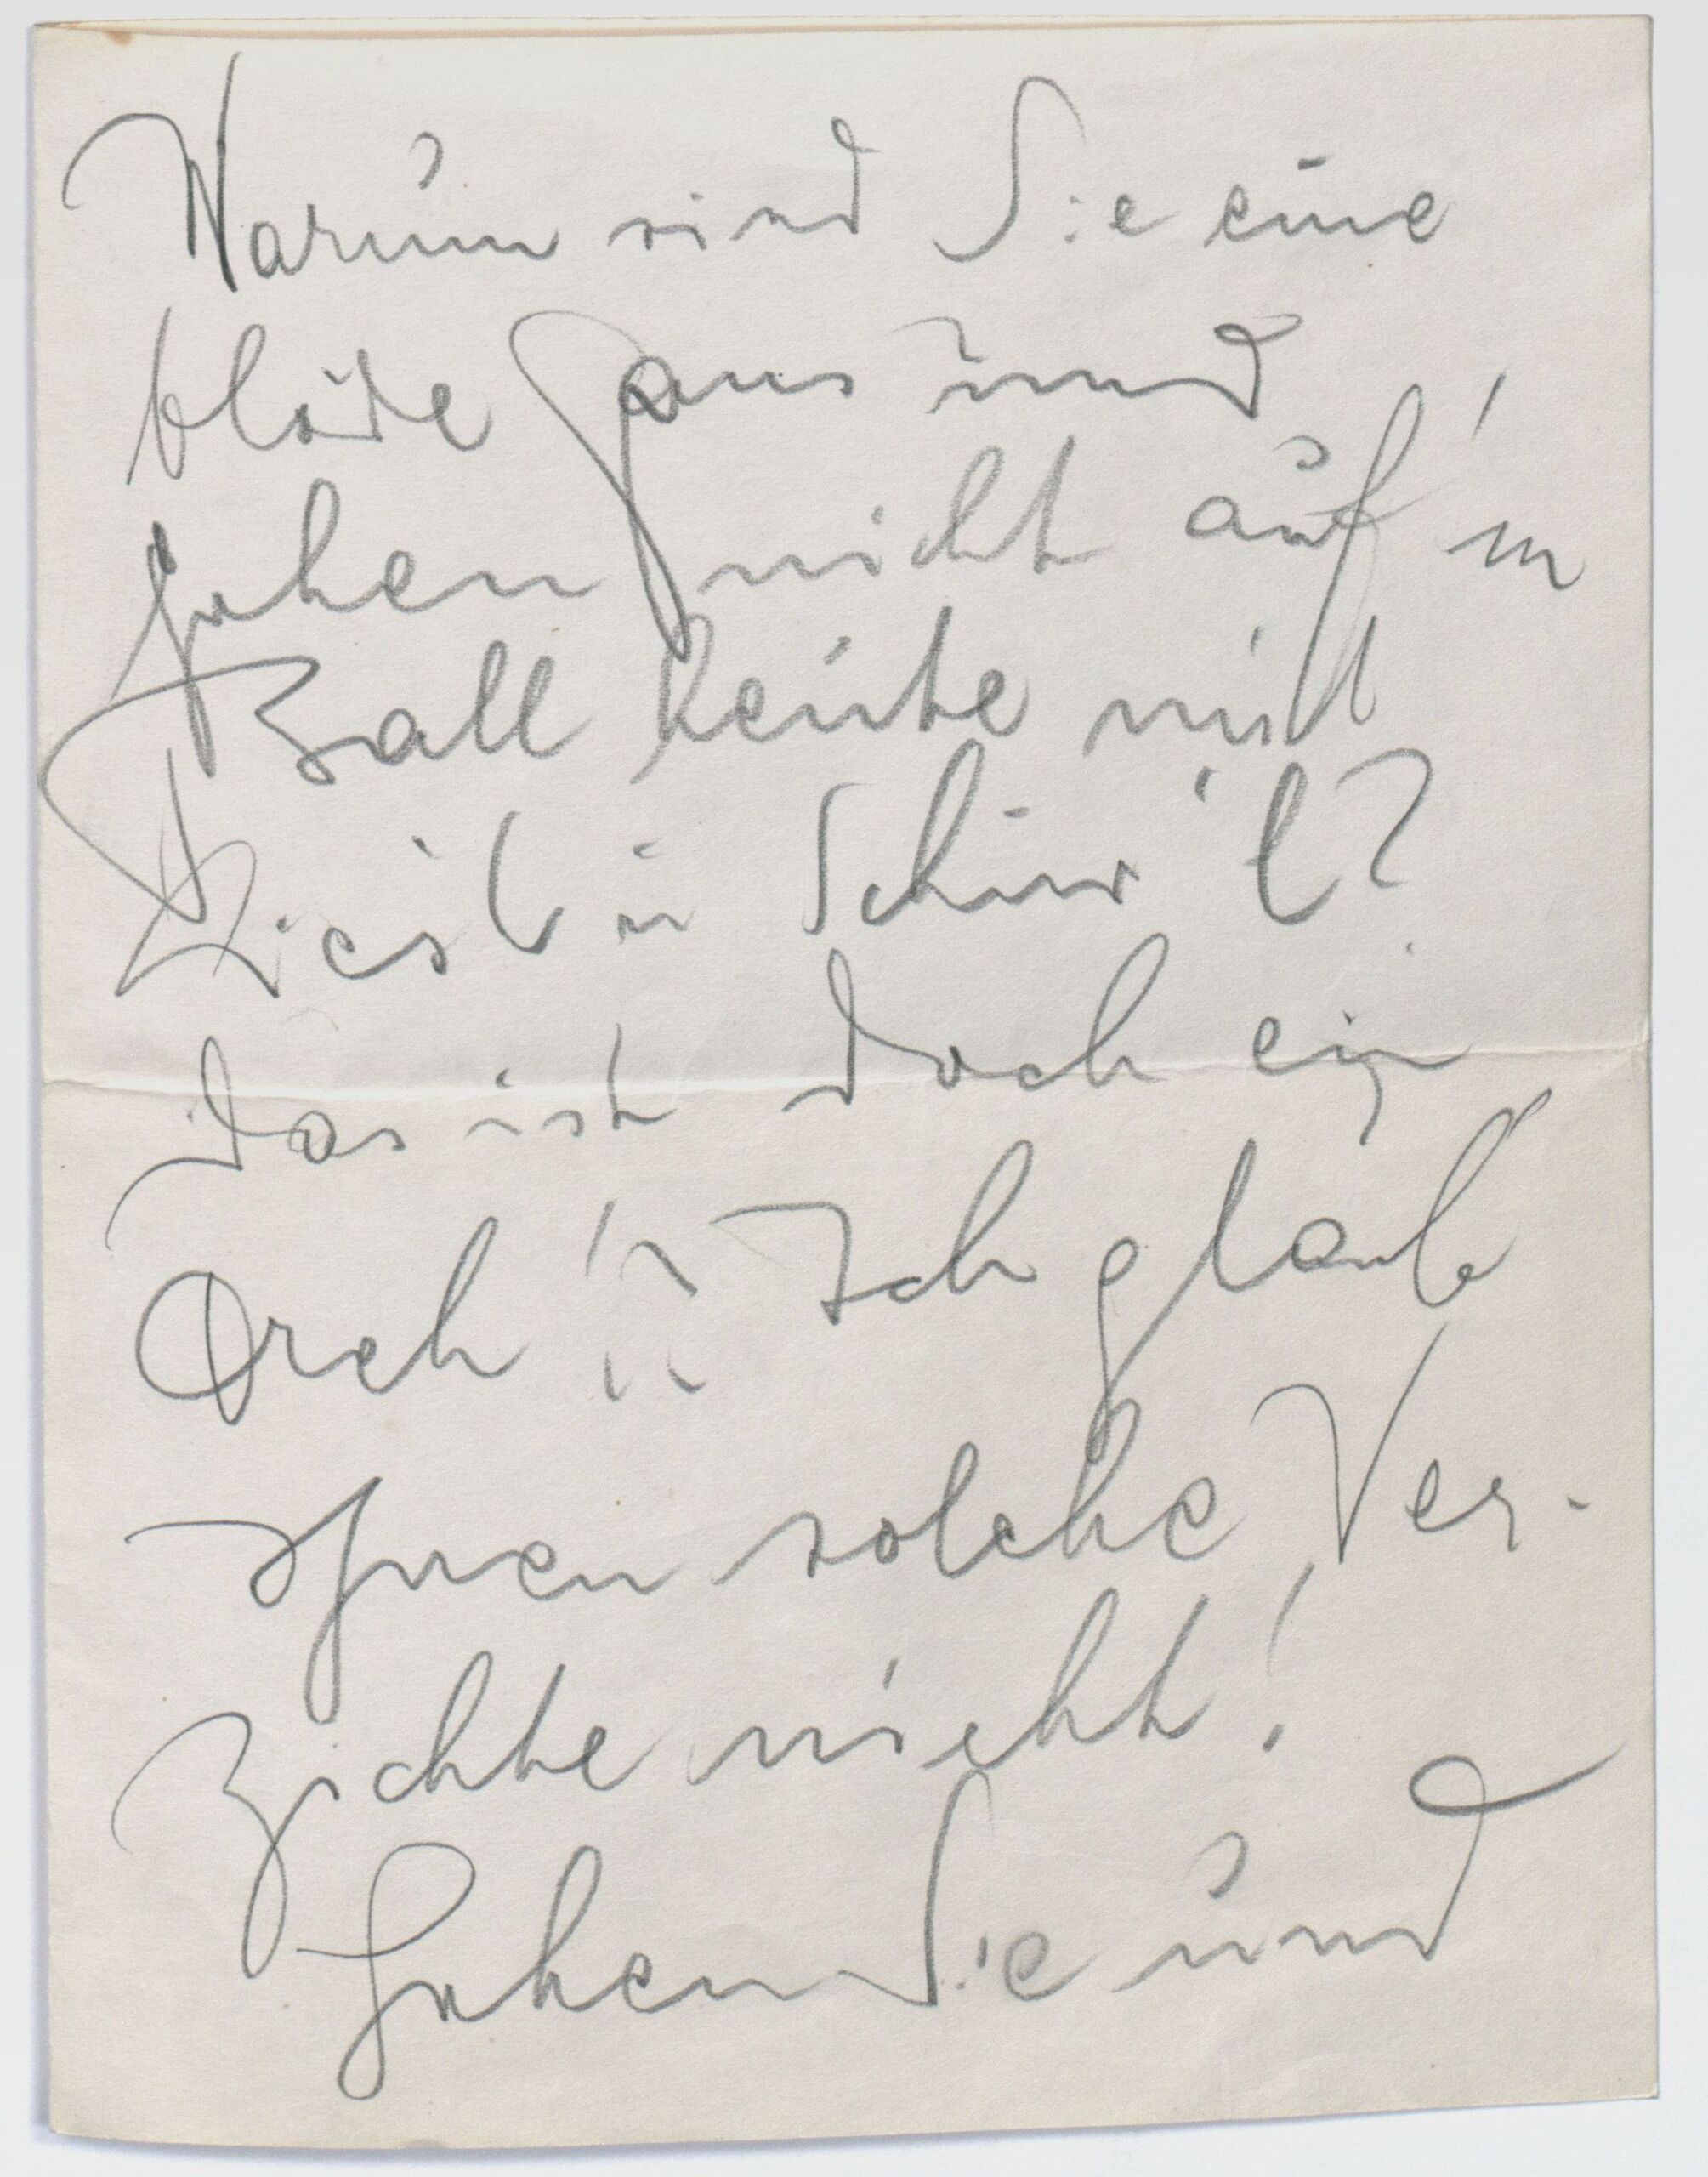 Warum sind Sie eine
blöde Gans und
gehen nicht auf'n
Ball heute mit
Liesl u
Das ist doch ein
Dreh!! Ich glaub
Ihnen solche Ver-
zichte nicht!
Gehen Sie und